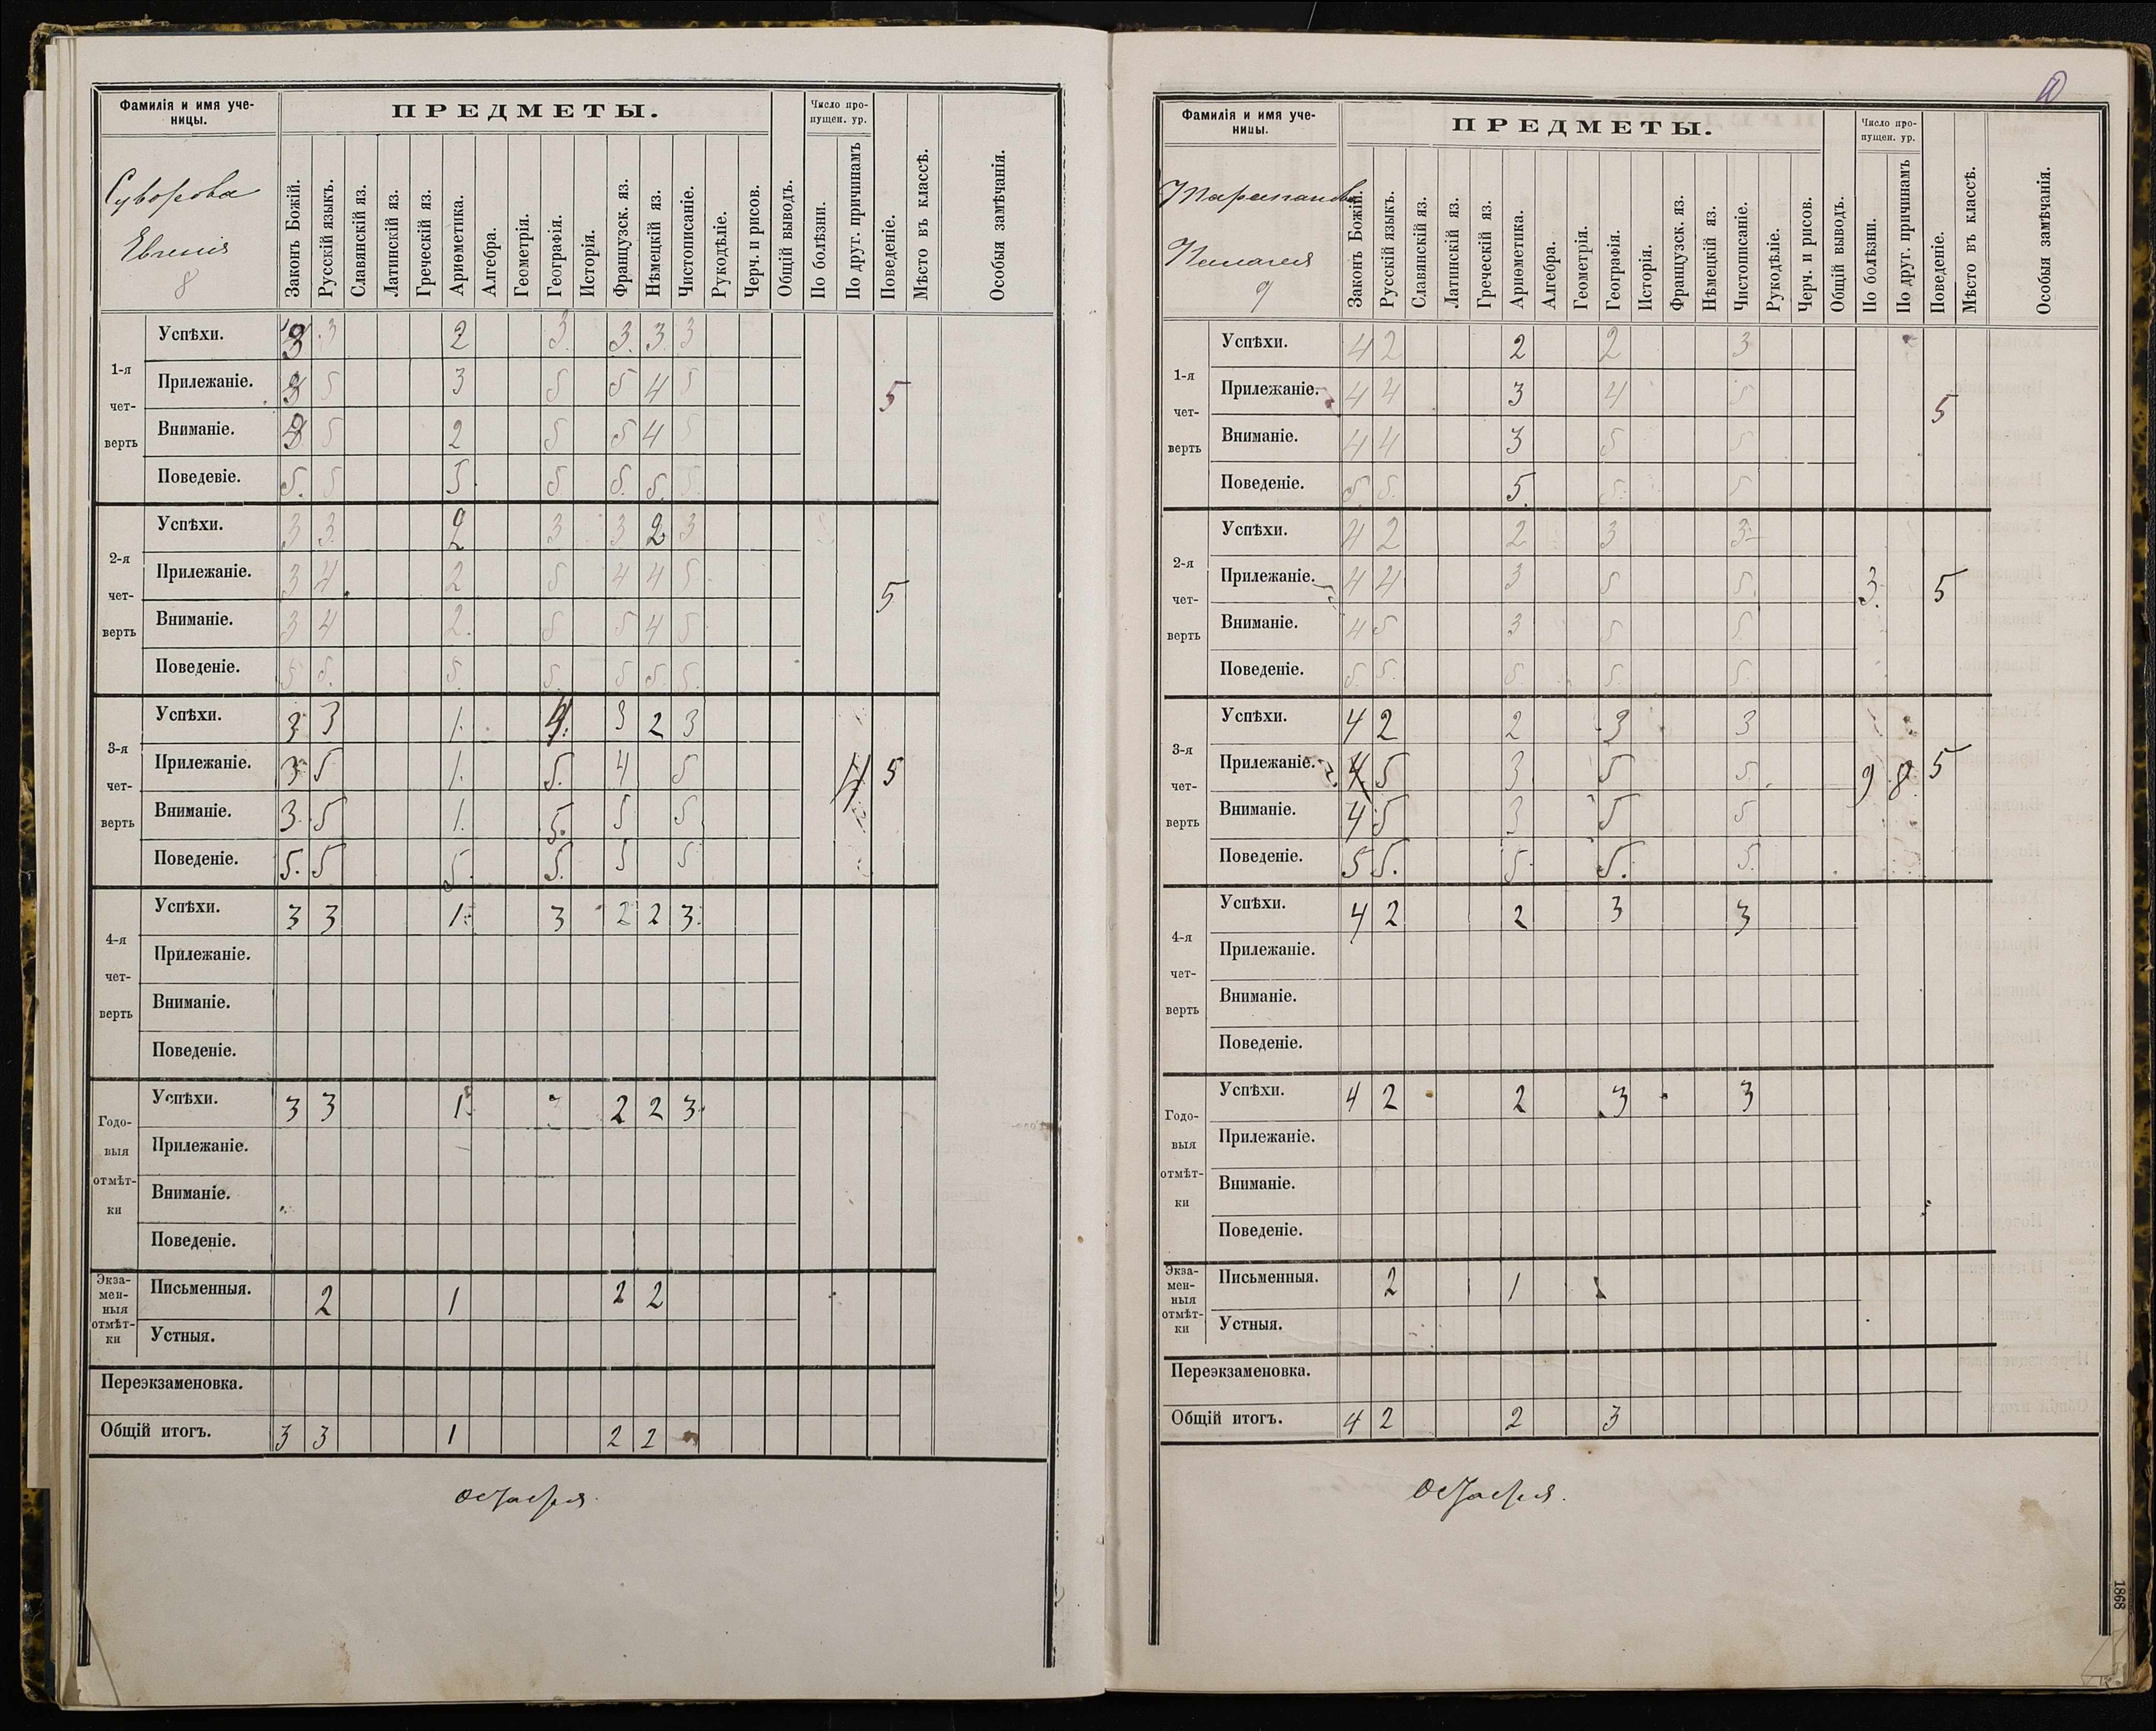 Фамилія и имя уче-
ницы.
ПРЕДМЕТЫ.
Число про-
пущен. ур.
Суворова
Евгенія
8
Законъ Божій.
Русскій языкъ.
Славянскій яз.
Латинскій яз.
Греческій яз.
Ариѳметика.
Алгебра.
Геометрія.
Географія.
Исторія.
Французск. яз.
Нѣмецкій яз.
Чистописаніе.
Рукодѣліе.
Черч. и рисов.
Общій выводъ.
По болѣзни.
По друг. причинамъ
Поведеніе.
Мѣсто въ классѣ.
Особыя замѣчанія.
1-я
чет-
верть
Успѣхи. 3 3 2 3. 3. 3. 3
Прилежаніе. 3 5 3 5 5 4 5 5
Вниманіе. 3 5 2 5 5 4 5
Поведевіе. 5. 5 5. 5 5. 5. 5.
2-я
чет-
верть
Успѣхи. 3 3 2 3 3 2 3
Прилежаніе. 3 4. 2 5 4 4 5 5
Вниманіе. 3 4 2. 5 5 4 5
Поведеніе. 5 5. 5. 5. 5 5. 5.
3-я
чет-
верть
Успѣхи. 3. 3 1. 4. 3 2 3
Прилежаніе. 3 5 1. 5. 4 5 4 5
Вниманіе. 3. 5 1. 5. 5 5
Поведеніе. 5. 5 5. 5. 5 5
4-я
чет-
верть
Успѣхи. 3 3 1. 3 2 2 3.
Прилежаніе.
Вниманіе.
Поведеніе.
Годо-
выя
отмѣт-
ки
Успѣхи. 3 3 1. 2 2 3.
Прилежаніе.
Вниманіе.
Поведеніе.
Экза-
мен-
ныя
отмѣт-
ки
Письменныя. 2 1 2 2
Устныя.
Переэкзаменовка.
Общій итогъ. 3 3 1 2 2
Остаться.
Фамилія и имя уче-
ницы.
ПРЕДМЕТЫ.
Число про-
пущен. ур.
Пелагея
9
Законъ Божій.
Русскій языкъ.
Славянскій яз.
Латинскій яз.
Греческій яз.
Ариѳметика.
Алгебра.
Геометрія.
Географія.
Исторія.
Французск. яз.
Нѣмецкій яз.
Чистописаніе.
Рукодѣліе.
Черч. и рисов.
Общій выводъ.
По болѣзни.
По друг. причинамъ
Поведеніе.
Мѣсто въ классѣ.
Особыя замѣчанія.
1-я
чет-
верть
Успѣхи. 4 2 2 2 3
Прилежаніе. 4 4 3 4 5 5
Вниманіе. 4 4 3 5 5
Поведеніе. 5. 5. 5. 5. 5
2-я
чет-
верть
Успѣхи. 4 2 2 3 3
Прилежаніе. 4 4 3 5 5. 3. 5
Вниманіе. 4 5 3 5 5
Поведеніе. 5. 5. 5. 5. 5.
3-я
чет-
верть
Успѣхи. 4 2 2 3 3
Прилежаніе. 4 5 3 5 5. 9 8 5
Вниманіе. 4 5 3 5 5
Поведеніе. 5 5. 5. 5. 5.
4-я
чет-
верть
Успѣхи. 4 2 2 3 3
Прилежаніе.
Вниманіе.
Поведеніе.
Годо-
выя
отмѣт-
ки
Успѣхи. 4 2 2 3 3
Прилежаніе.
Вниманіе.
Поведеніе.
Экза-
мен-
ныя
отмѣт-
ки
Письменныя. 2 1
Устныя.
Переэкзаменовка.
Общій итогъ. 4 2 2 3
Остаться.
1868